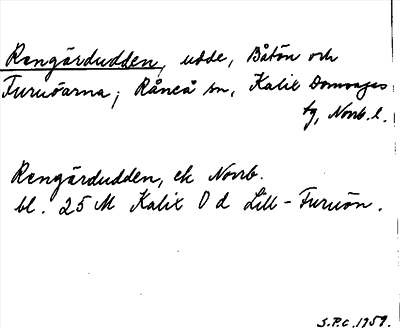 Rengärdudden, udde, Båtön och
Furuöarna; Råneå sn, Kalix Domsagas
tg, Norrb. l.
Rengärdudden, ek Norrb.
bl. 25 M Kalix O d Lill-Furuön.
S.P.C. 1959.